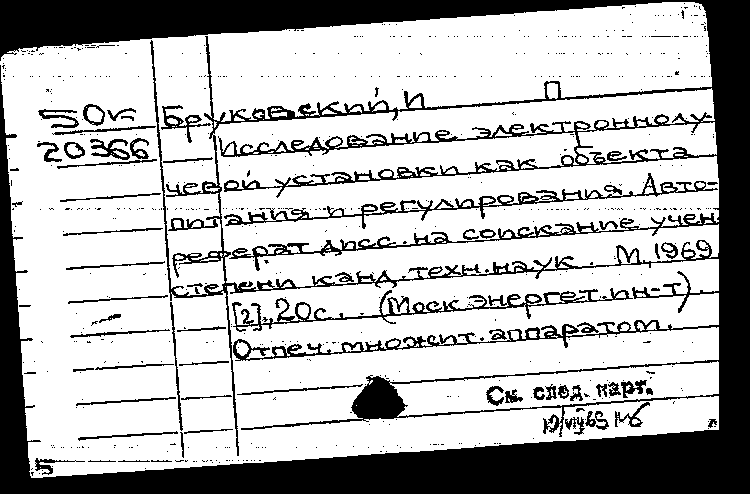 50к Бруковский, И П
20366 Исследование электроннолу-
чевой установки как объекта
питания и регулирования. Авто-
реферат дисс. на соискание учен.
степени канд. техн. наук. М, 1969
[2], 20с. (Моск энергет. ин-т).
Отпеч. множит. аппаратом.
См. след. карт.
19/VIII 69
5